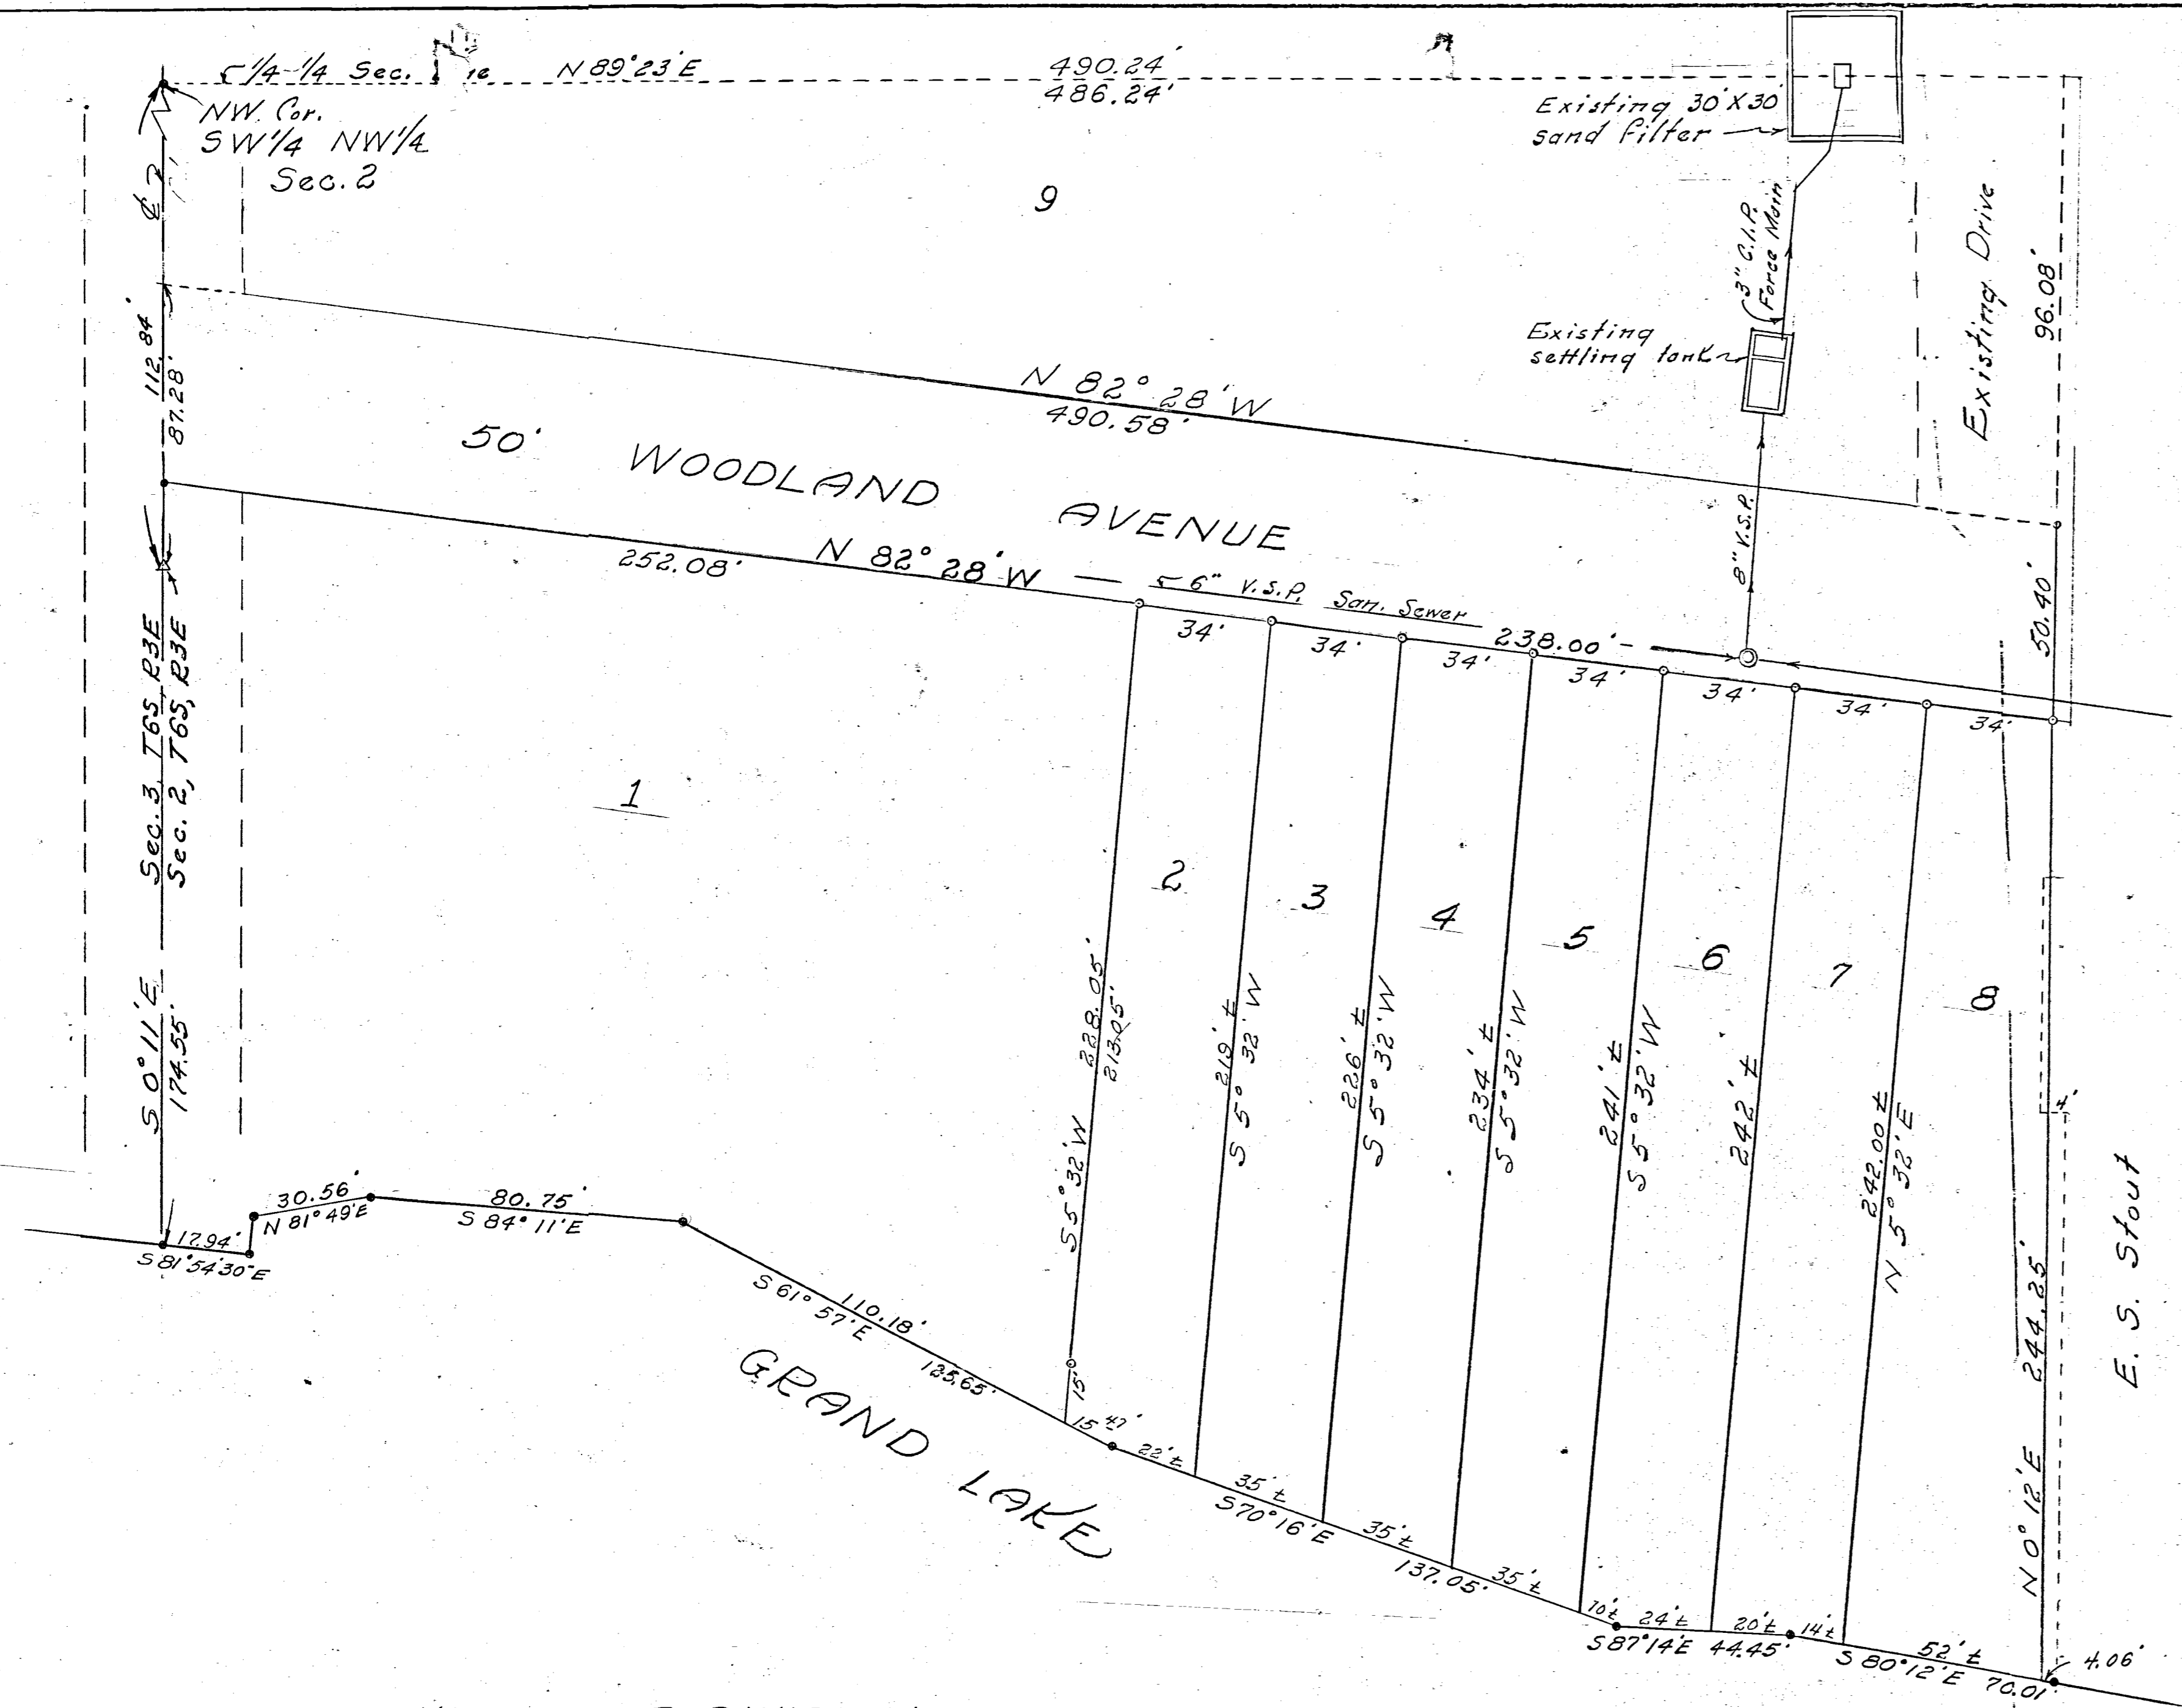 1/4-1/4 Sec.
N 89°23'E
490.24'
486.24'
NW. Cor.
SW 1/4 NW 1/4
Sec. 2
Existing 30'X30'
sand filter
9
3" C.I.P.
Force Main
Existing Drive
96.08'
Existing
settling tank
112.84'
87.28'
N 82° 28' W
490.58'
50' WOODLAND AVENUE
8" V.S.P.
50.40'
252.08'
N 82° 28' W
6" V.S.P. San. Sewer
238.00'
34'
34'
34'
34'
34'
34'
34'
Sec. 3, T6S, R3E
Sec. 2, T6S, R3E
1
2
3
4
5
6
7
8
S 0° 11' E
174.55'
S 5° 32' W
228.05'
213.05'
219' ±
S 5° 32' W
226' ±
S 5° 32' W
234' ±
S 5° 32' W
241' ±
S 5° 32' W
242' ±
242.00 ±
N 5° 32' E
4'
N 0° 12' E 244.25'
E. S. Stout
30.56'
N 81° 49' E
80.75'
S 84° 11' E
17.94'
S 81° 54' 30" E
110.18'
S 61° 57' E
125.65'
15'
15.47'
GRAND LAKE
22' ±
35' ±
S 70° 16' E
35' ±
137.05'
35' ±
10' ±
24' ±
20' ±
14' ±
S 87° 14' E 44.45'
52' ±
S 80° 12' E 70.01'
4.06'